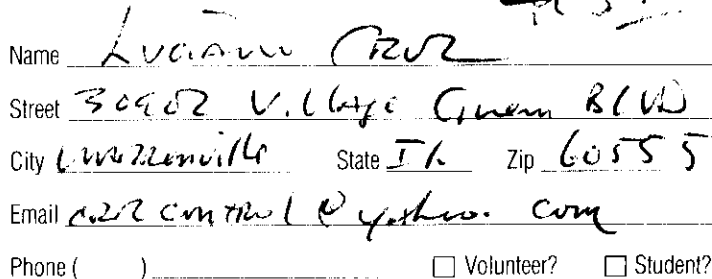 Name Luciano Cruz
Street Village Green Blvd
City Warrenville State IL Zip 60555
Email @yahoo.com
Phone ( ) ☐ Volunteer? ☐ Student?